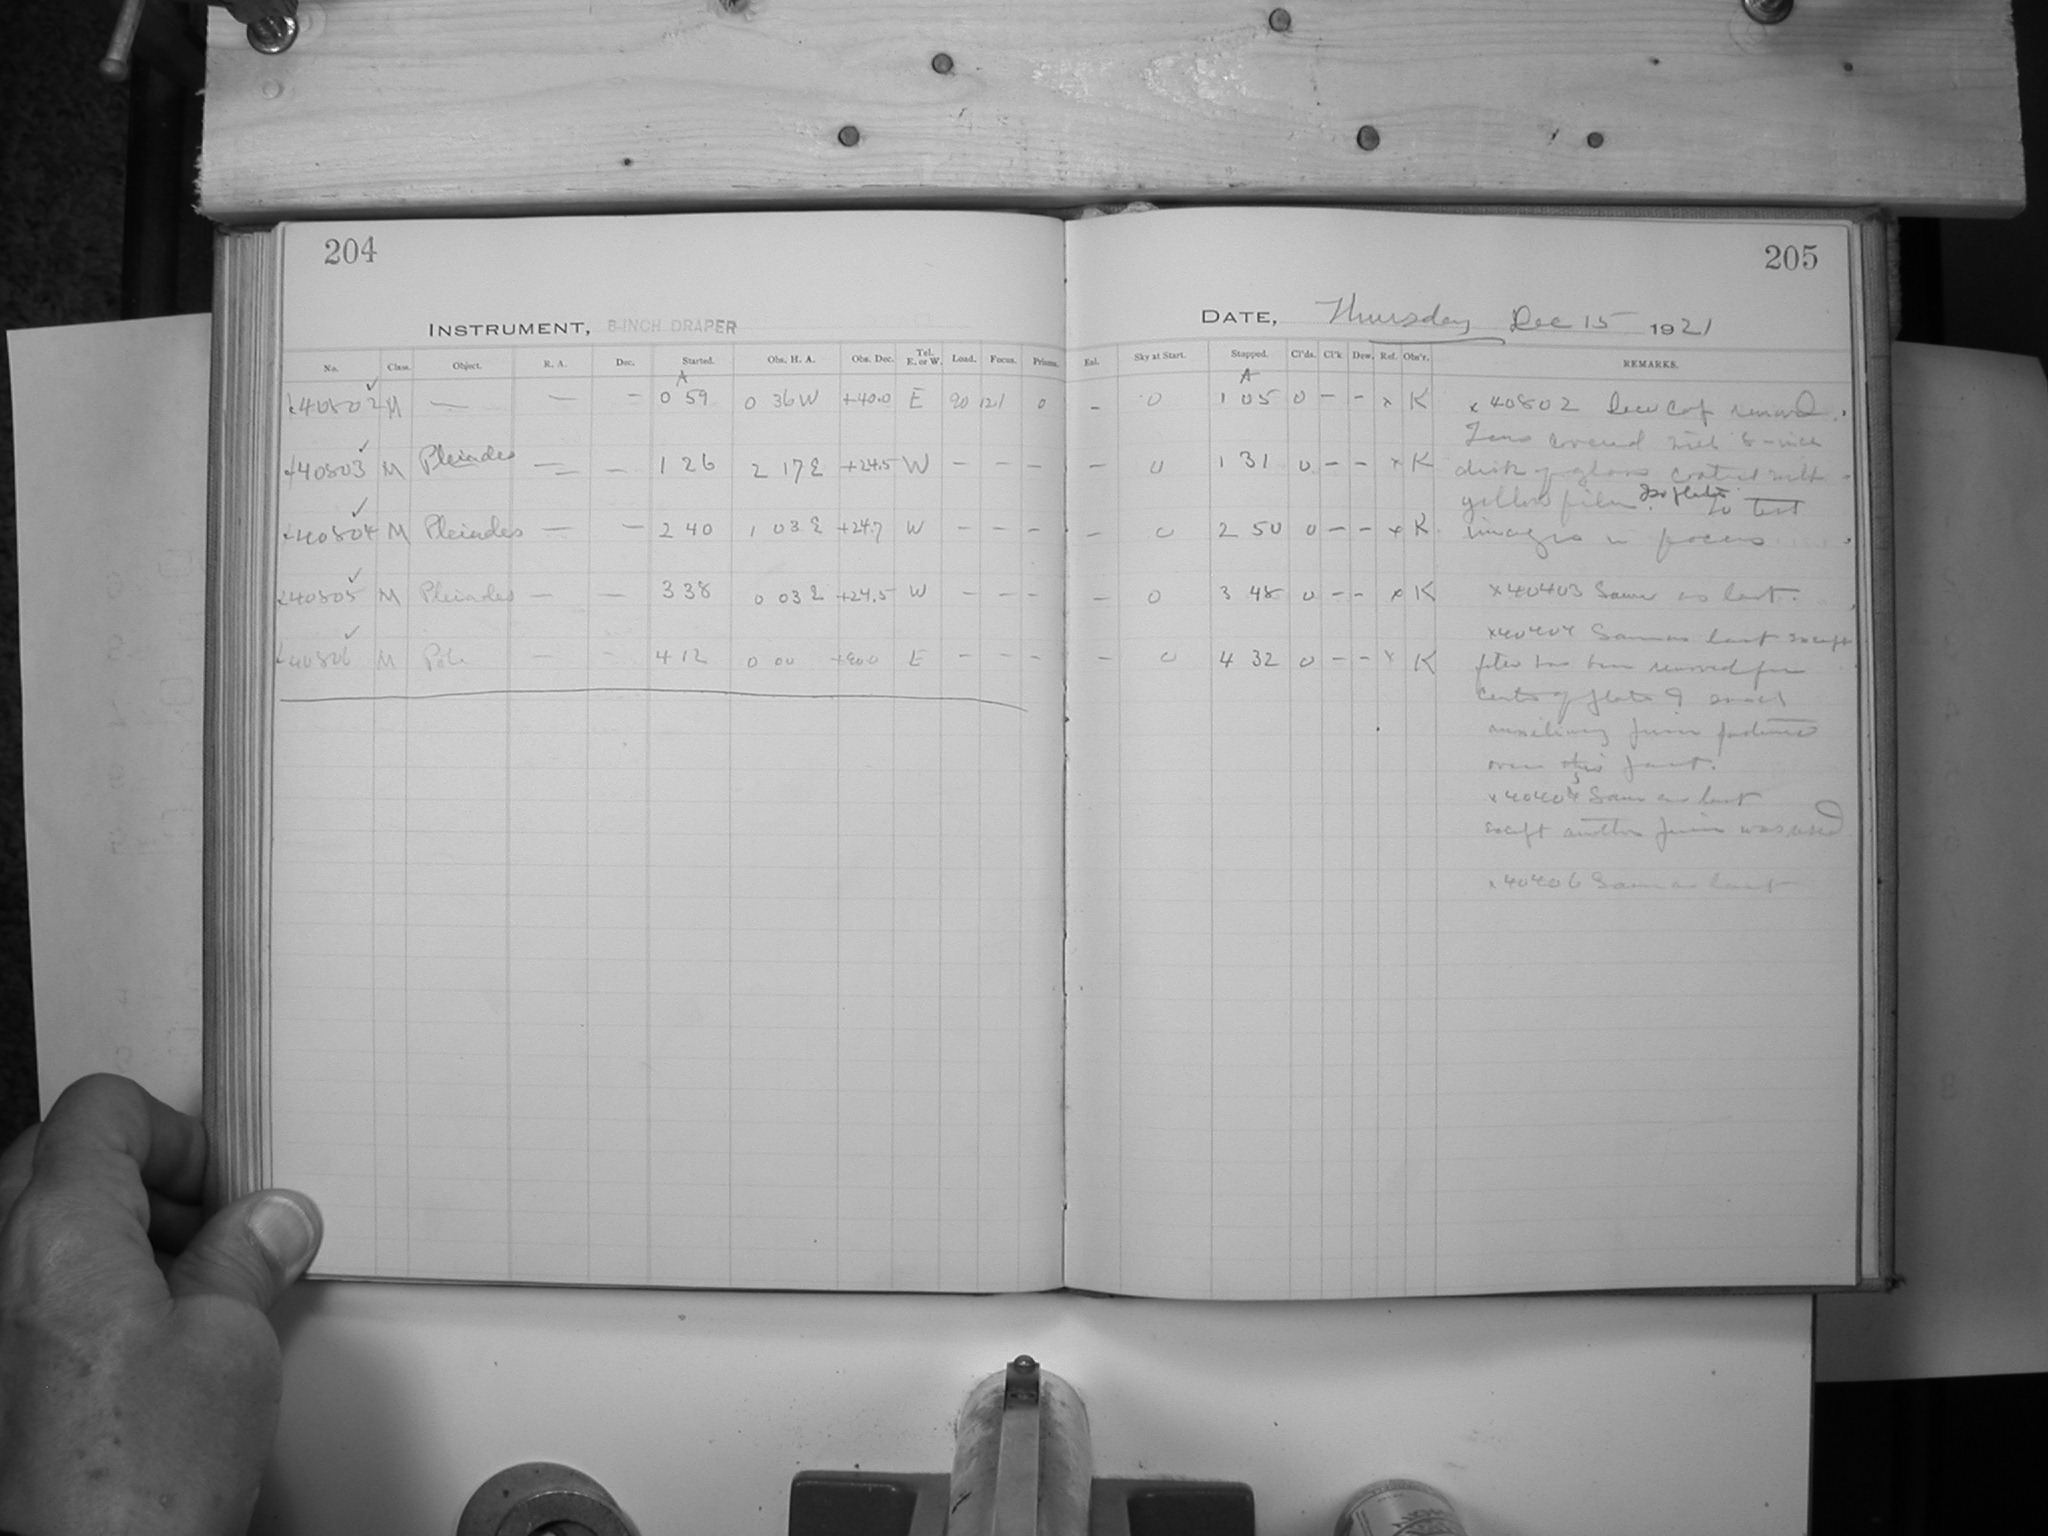 204
205
INSTRUMENT, 8-INCH DRAPER
DATE, Thursday Dec 15 1921
No. Class. Object. R. A. Dec. Started. Obs. H. A. Obs. Dec. Tel. E. or W. Load. Focus. Prisms. Eal. Sky at Start. Stopped. Cl'ds. Cl'k Dew. Ref. Obs'r. REMARKS.
A A
x40802 M — — — 0 59 0 36 W +40.0 E 90 121 0 – 0 1 05 0 – – x K
x40803 M Pleiades — — 1 26 2 17 E +24.5 W – – – – 0 1 31 0 – – x K
x40804 M Pleiades — — 2 40 1 03 E +24.7 W – – – – 0 2 50 0 – – x K
x40805 M Pleiades — — 3 38 0 03 E +24.5 W – – – – 0 3 48 0 – – x K
x40806 M Pole — — 4 12 0 00 +90.0 E – – – – 0 4 32 0 – – x K
x40802 Dew cap removed.
Lens covered with 8-inch
disk of glass coated with
yellow film. Iso plate. To test
images in focus
x40403 Same as last.
x40404 Same as last except
filter has been removed from
center of plate & small
auxiliary prism fastened
over this part.
x40405 Same as last
except another prism was used
x40406 Same as last